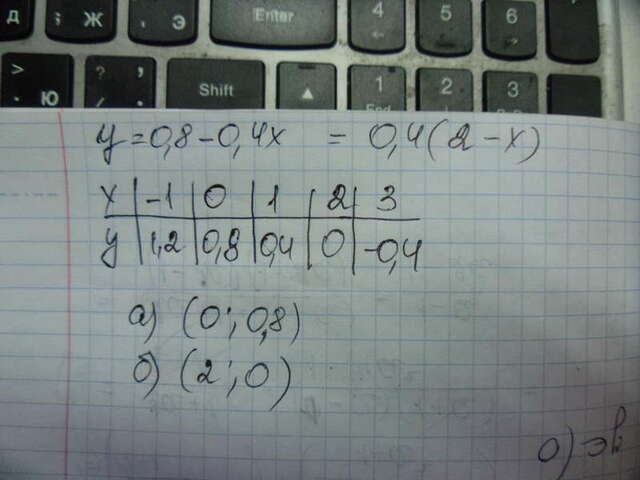 Д ; Ж Э Enter 4 5 6
> . Ю ? , Shift 1 End 2 3
y=0,8-0,4x = 0,4(2-x)
x -1 0 1 2 3
y 1,2 0,8 0,4 0 -0,4
а) (0; 0,8)
б) (2; 0)